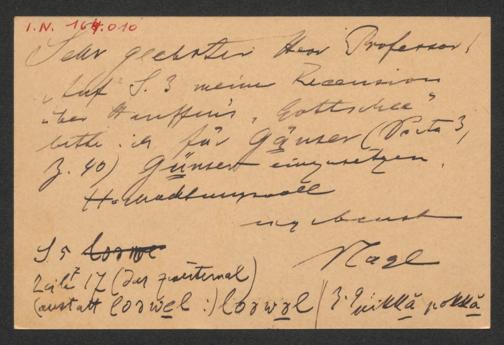 I.N. 164.010
Sehr geehrter Herr Professor!
Auf S. 3 meiner Recension
über Hauffen's „Gottschee"
bitte ich für Gänser (Seite 3,
Z. 40) Günser einzusetzen.
Hochachtungsvoll
ergebenst
Nagl
S 5
Zeile 17 (das zweitemal)
(anstatt lorwel :) lorwol